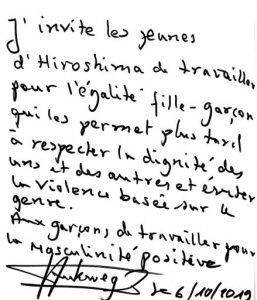 J'invite les jeunes
d'Hiroshima de travailler
pour l'égalité fille-garçon
qui les permet plus tard
à respecter la dignité des
uns et des autres et éviter
la violence basée sur le
genre.
Aux garçons de travailler pour
la masculinité positive
le 6/10/2019